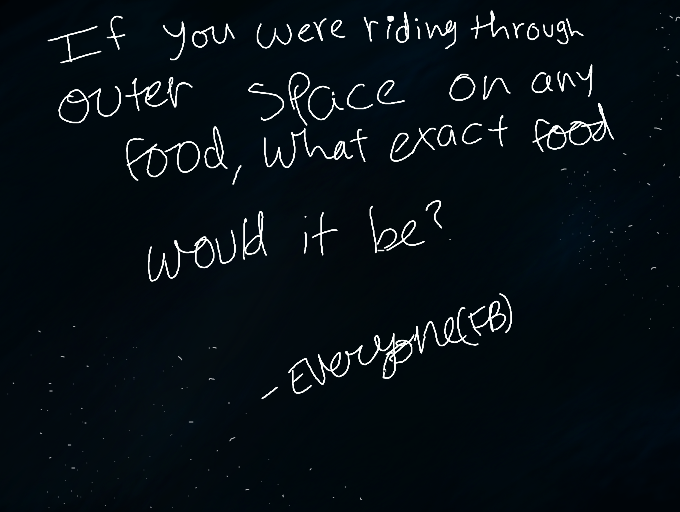 If you were riding through
outer space on any
food, what exact food
would it be?
- Everyone(FB)